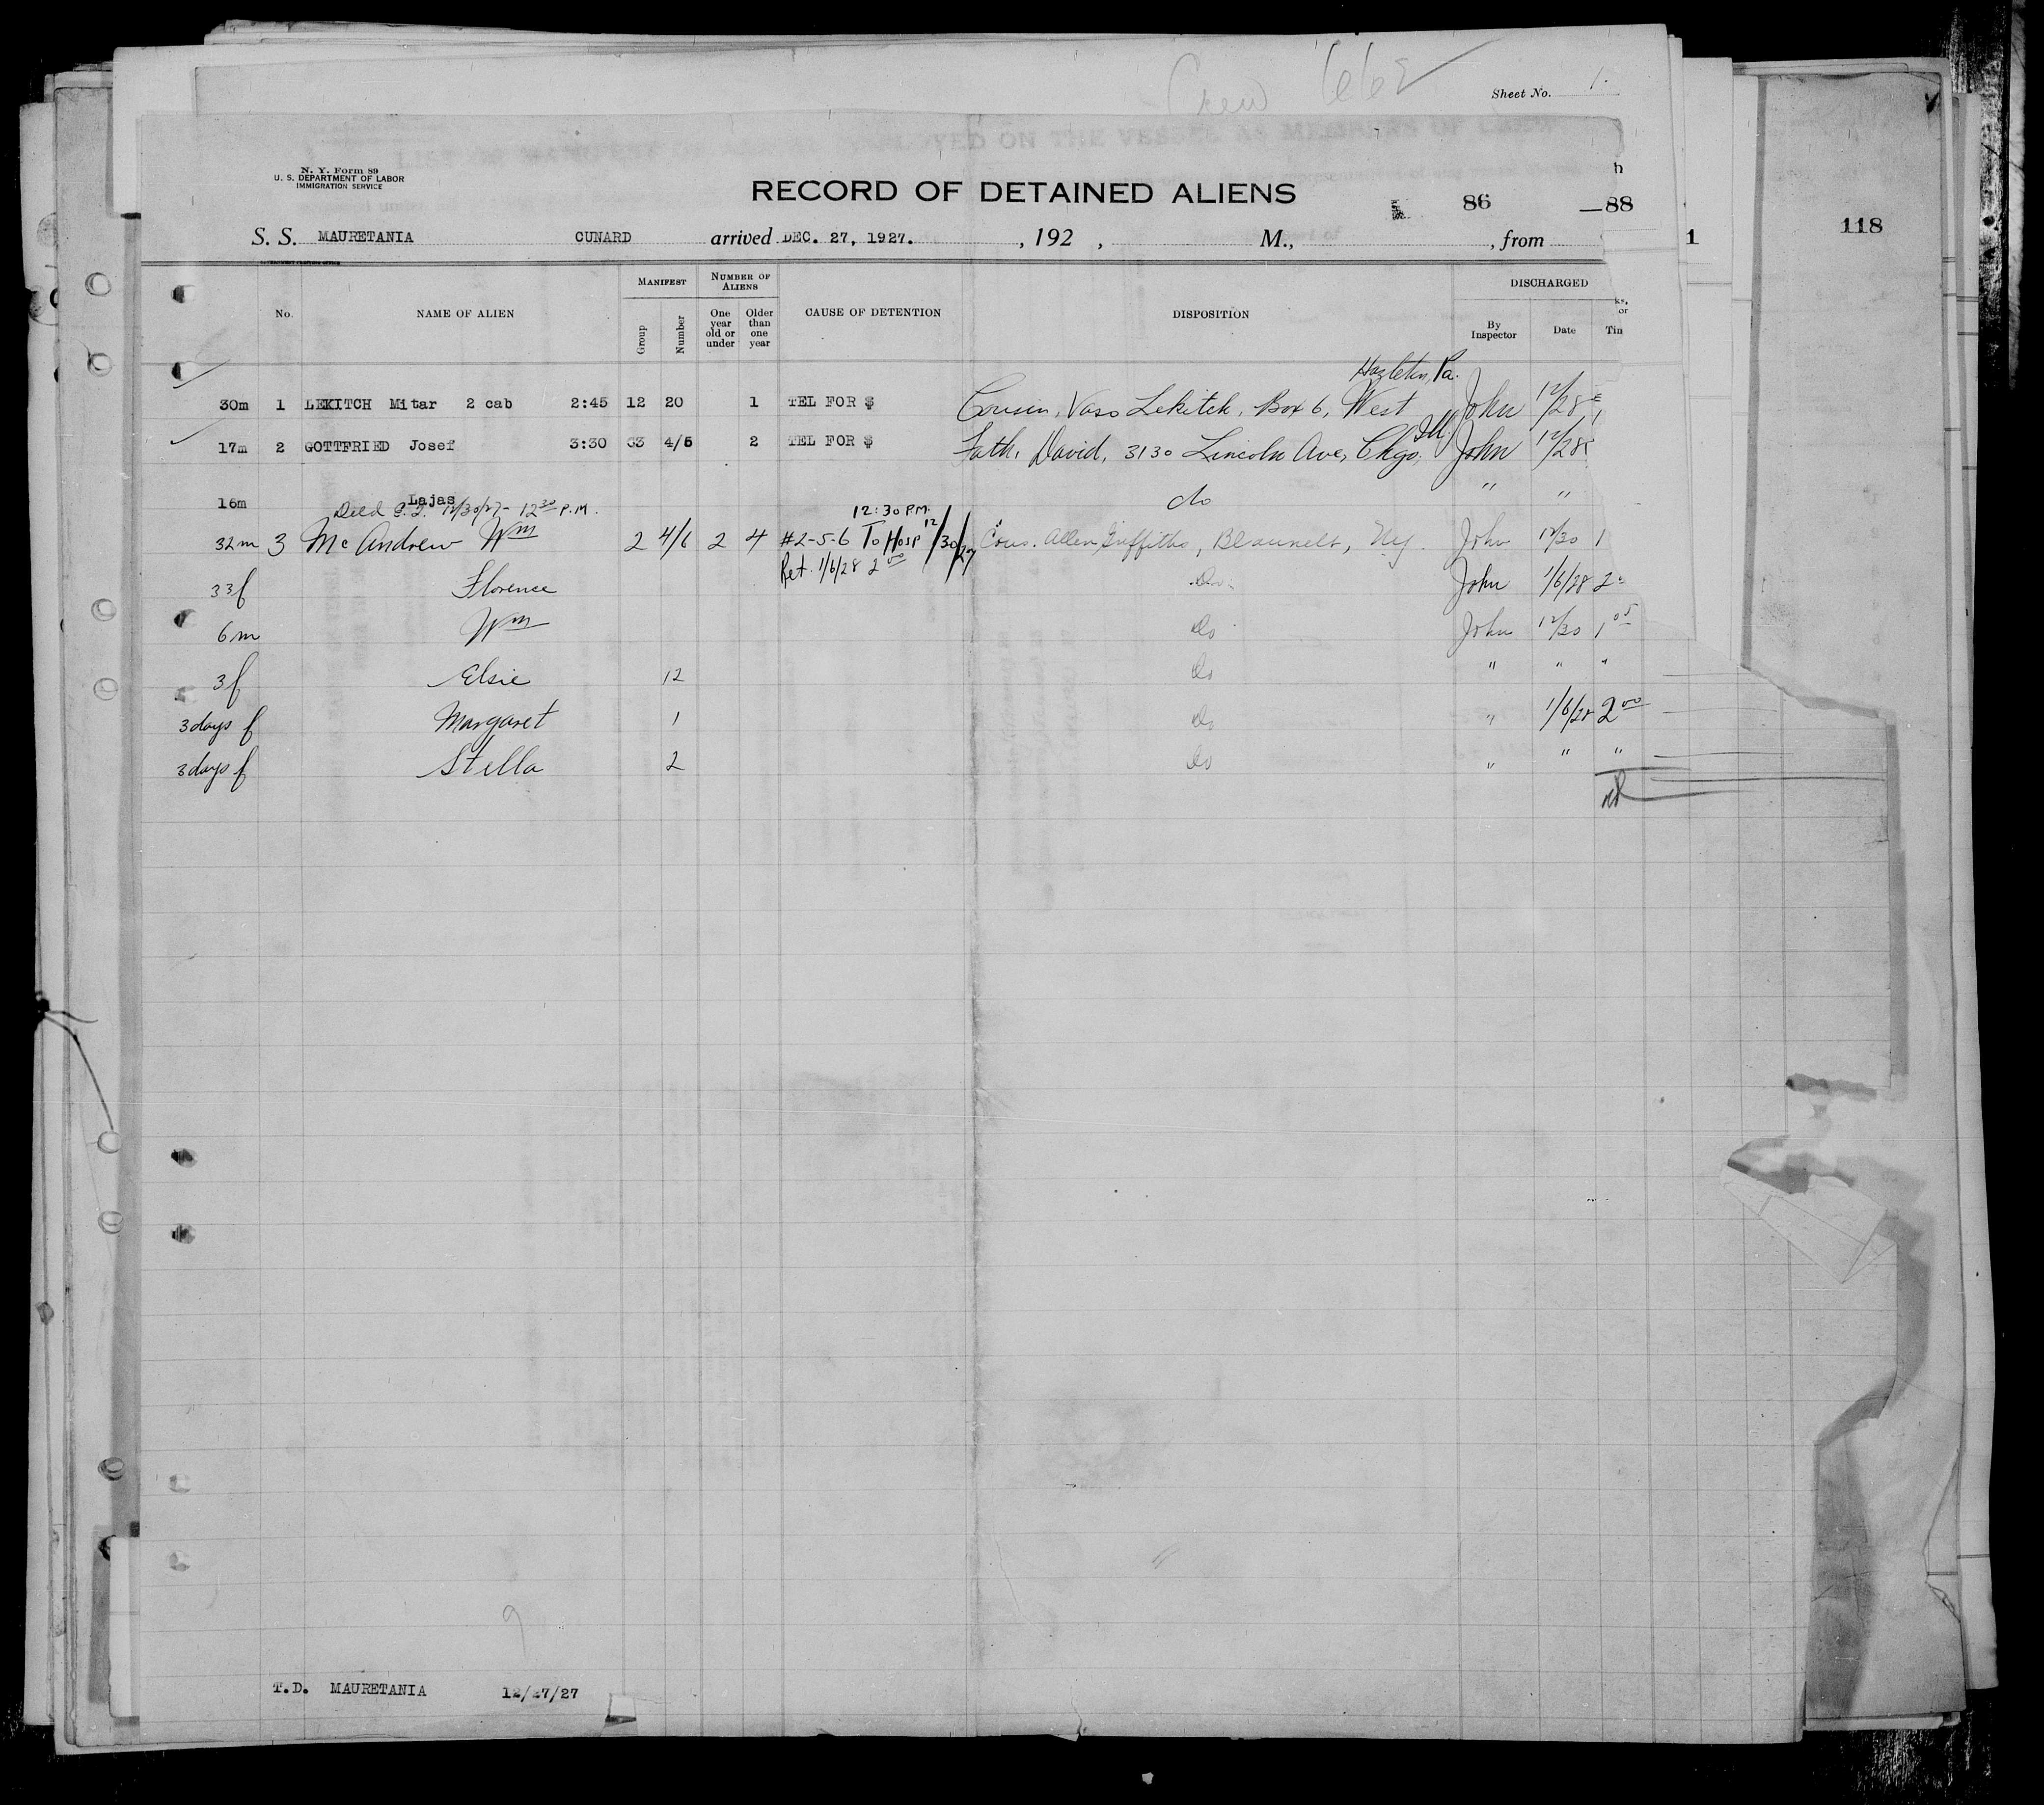 Crew
Sheet No. 1.
LIST OR MANIFEST OF ALIENS EMPLOYED ON THE VESSEL AS MEMBERS OF CREW
N. Y. Form 89
U. S. DEPARTMENT OF LABOR
IMMIGRATION SERVICE
RECORD OF DETAINED ALIENS
86 —88
118
S. S. MAURETANIA CUNARD arrived DEC. 27, 1927. , 192 , M., , from
1
No. NAME OF ALIEN MANIFEST Group Number NUMBER OF ALIENS One year old or under Older than one year CAUSE OF DETENTION DISPOSITION DISCHARGED By Inspector Date Tim
Hazleton, Pa.
30m 1 LEKITCH Mitar 2 cab 2:45 12 20 1 TEL FOR $ Cousin, Vaso Lekitch, Box 6, West John 12/28
Ill.
17m 2 GOTTFRIED Josef 3:30 G3 4/5 2 TEL FOR $ Fath. David, 3130 Lincoln Ave, Chgo. John 12/28
16m Lajas do " "
12/30/27 - 12 30 P.M. 12:30 P.M.
32m 3 McAndrew Wm 2 4/6 2 4 #2-5-6 To Hosp 12/30/27 Cous. Allen Griffiths, , Ny. John 12/30 1
Ret. 1/6/28 2 00
33f Florence Do John 1/6/28 2
6m Wm Do John 12/30 1 05
3f Elsie 12 Do " " "
3days f Margaret 1 Do " 1/6/28 2 00
3days f Stella 2 Do " " "
9
T.D. MAURETANIA 12/27/27